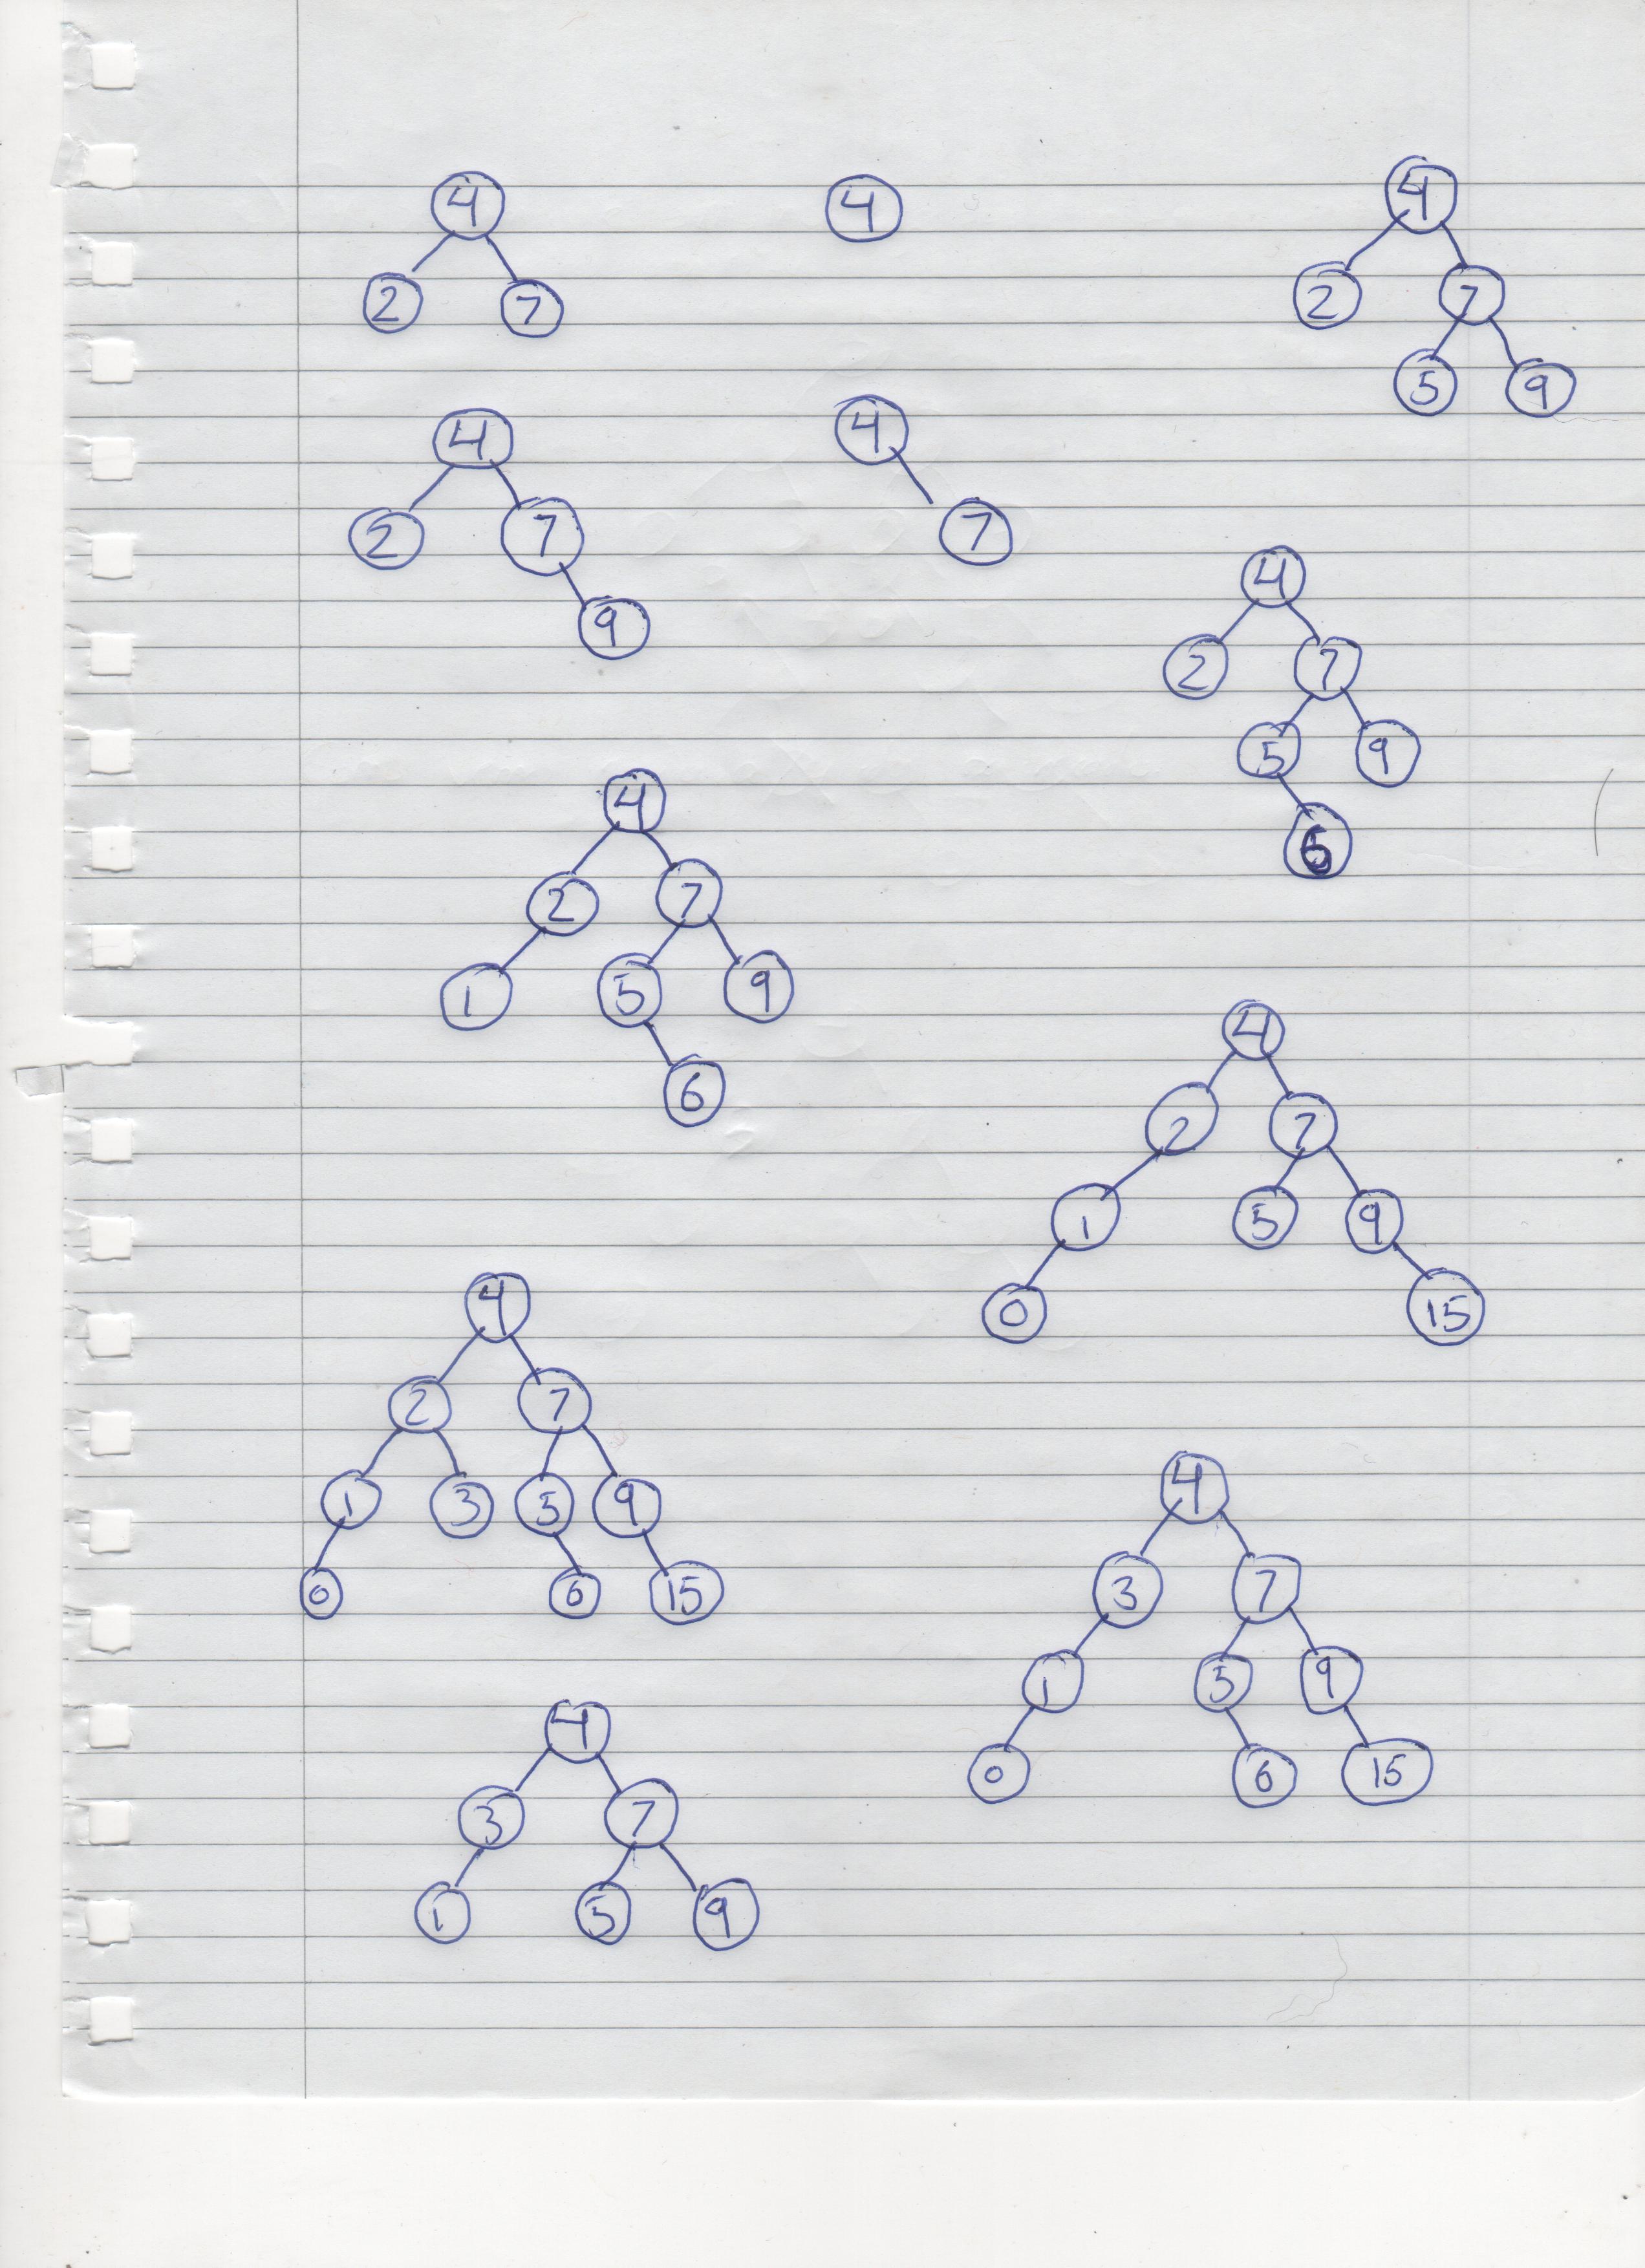 4 4 4
2 7 2 7
5 9
4 4
2 7 7
9
4
2 7
5 9
6
4
2 7
1 5 9
6
4
2 7
1 5 9
0 15
4
2 7
1 3 5 9
0 6 15
4
3 7
1 5 9
0 6 15
4
3 7
1 5 9